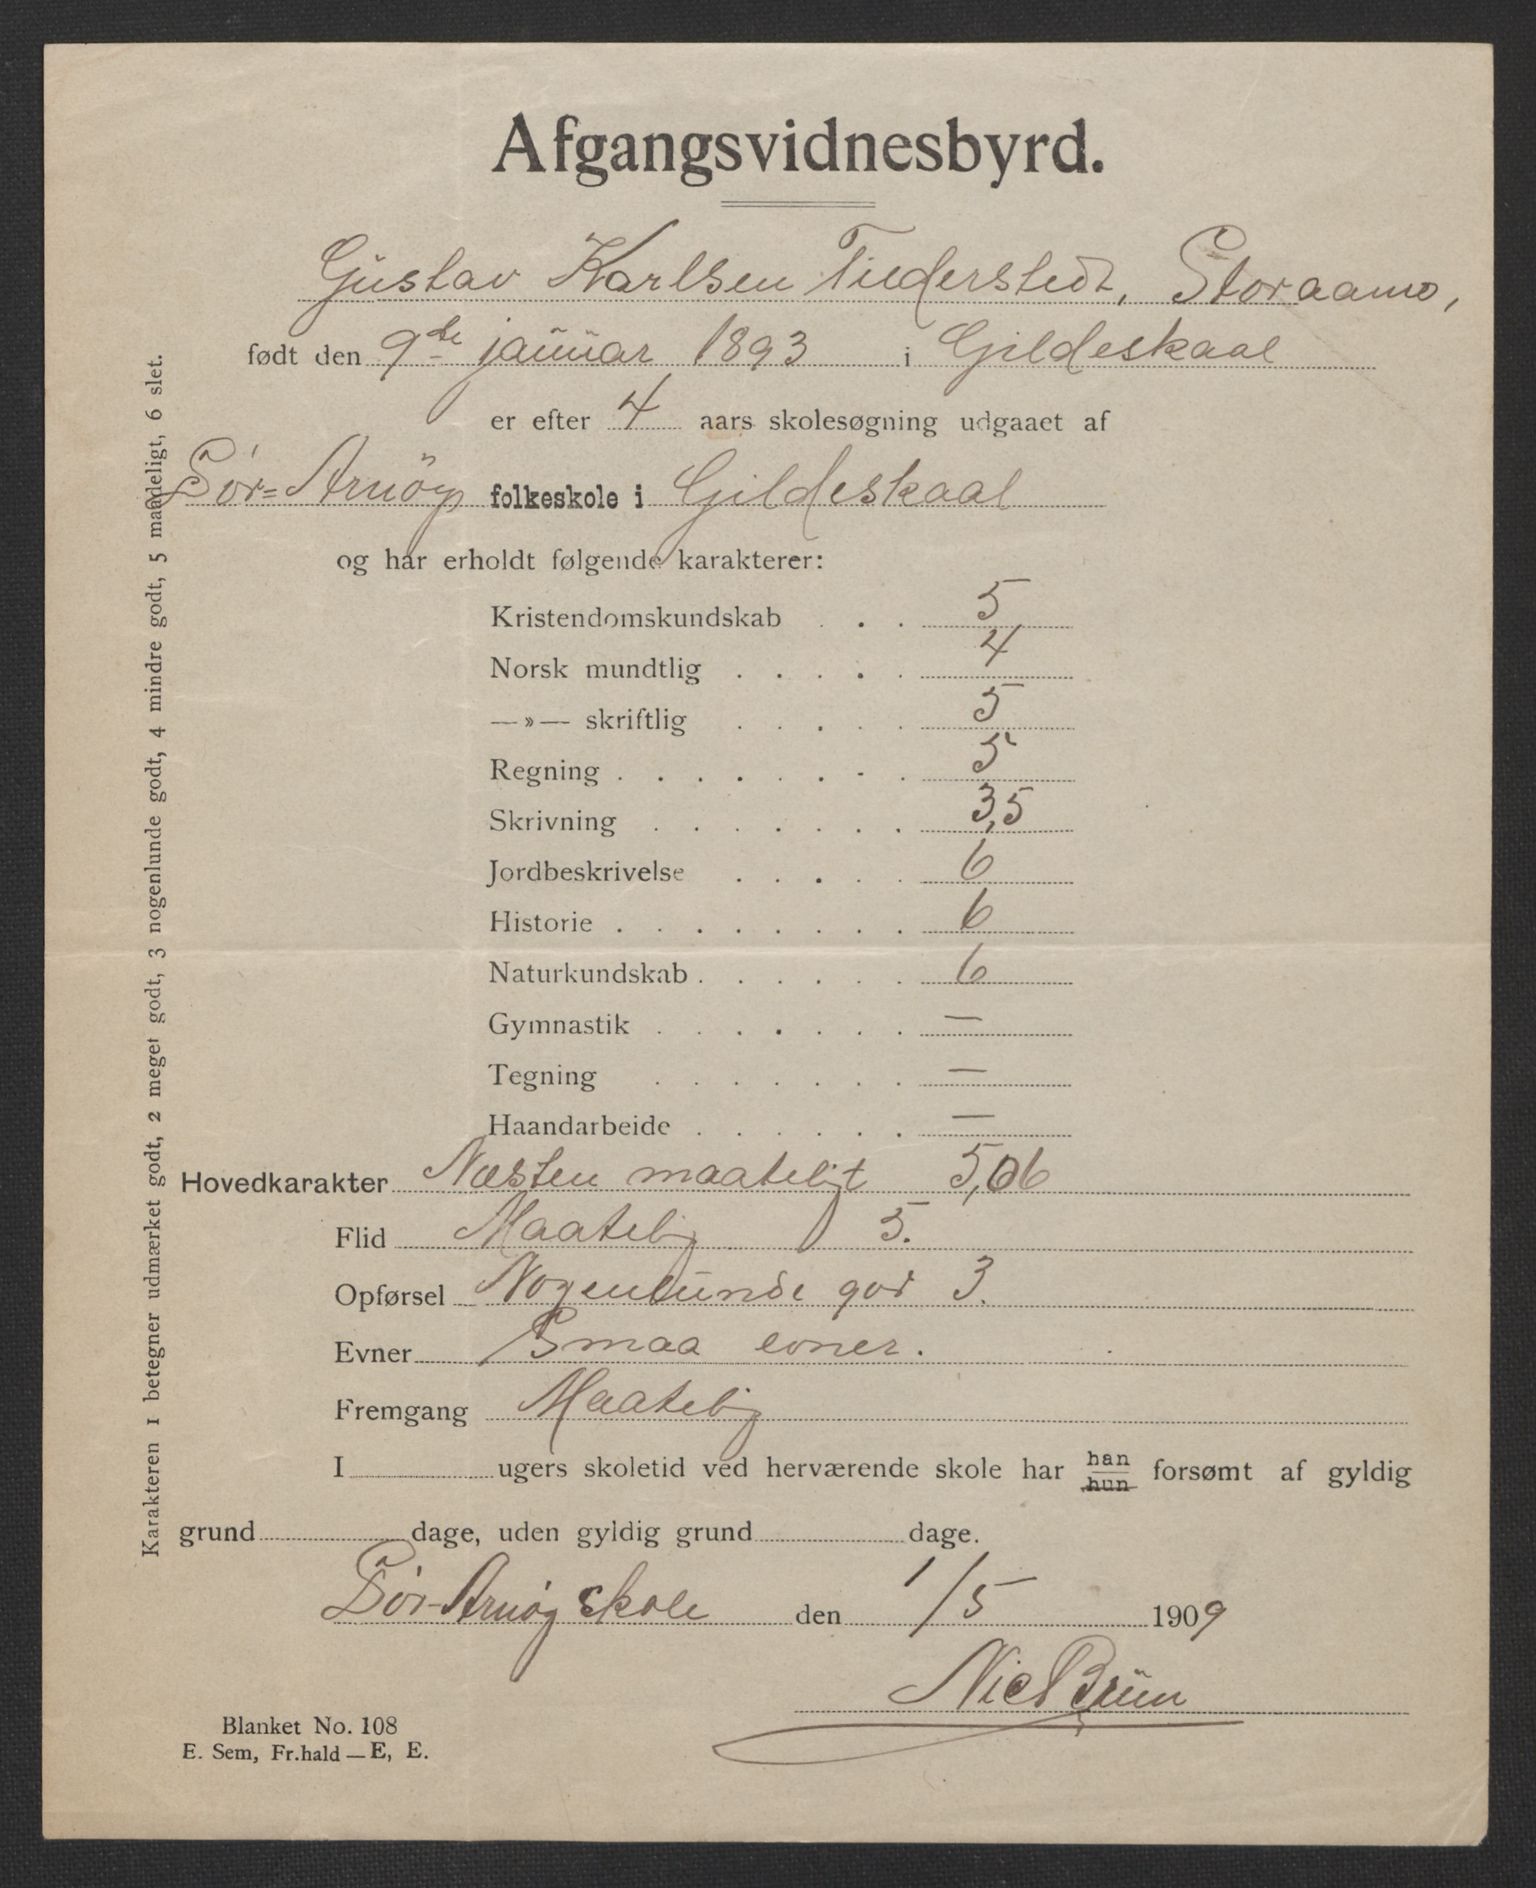 Afgangsvidnesbyrd.
Gustav Karlsen Tiederstedt, Storaamo,
født den 9de januar 1893 i Gildeskaal
er efter 4 aars skolesøgning udgaaet af
Sør=Arnöy folkeskole i Gildeskaal
og har erholdt følgende karakterer:
Kristendomskundskab . . . 5
Norsk mundtlig . . . . . 4
—»— skriftlig . . . . . 5
Regning . . . . . . . . 5
Skrivning . . . . . . . 3,5
Jordbeskrivelse . . . . . 6
Historie . . . . . . . . 6
Naturkundskab . . . . . . 6
Gymnastik . . . . . . . —
Tegning . . . . . . . —
Haandarbeide . . . . . . —
Hovedkarakter Næsten maateligt 5,06
Flid Maatelig 5.
Opførsel Nogenlunde god 3.
Evner Smaa evner.
Fremgang Maatelig
I ugers skoletid ved herværende skole har han hun forsømt af gyldig
grund dage, uden gyldig grund dage.
Sør-Arnøy skole den 1/5 1909
Nic Brun
Blanket No. 108
E. Sem, Fr.hald — E, E.
Karakteren 1 betegner udmærket godt, 2 meget godt, 3 nogenlunde godt, 4 mindre godt, 5 maadeligt, 6 slet.